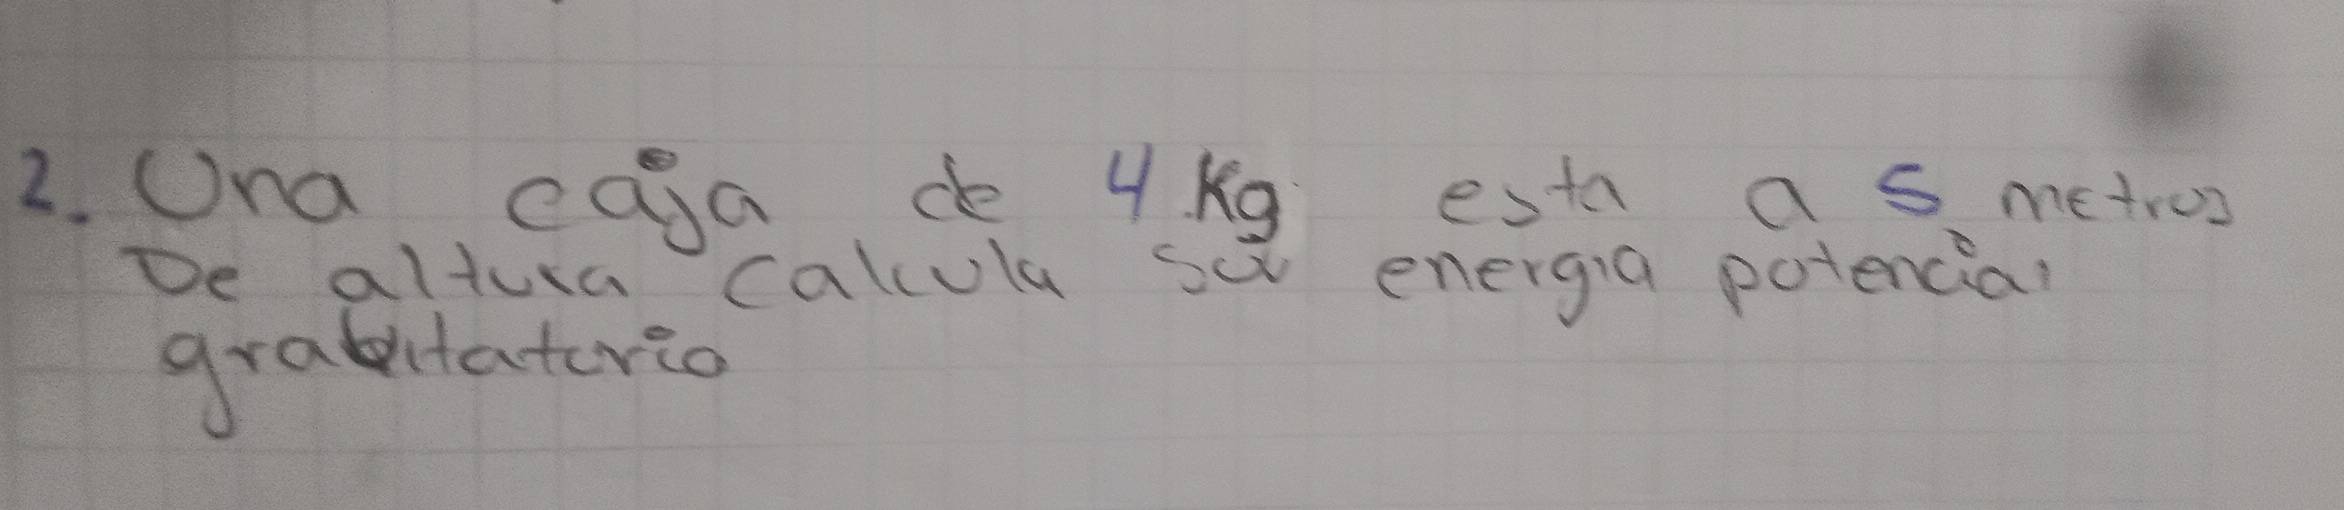 2. Una caja de 4 Kg esta a 5 metros
De altura calcula su energia potencial
grabitatorio